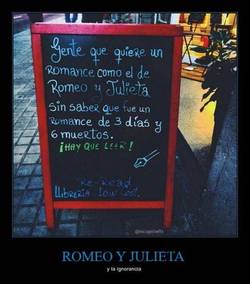 Gente que quiere un
romance como el de
Romeo y Julieta
Sin saber que fue un
romance de 3 días y
6 muertos.
¡HAY QUE LEER!
Re-Read
Llibreria Low Cost.
ROMEO Y JULIETA
y la ignorancia